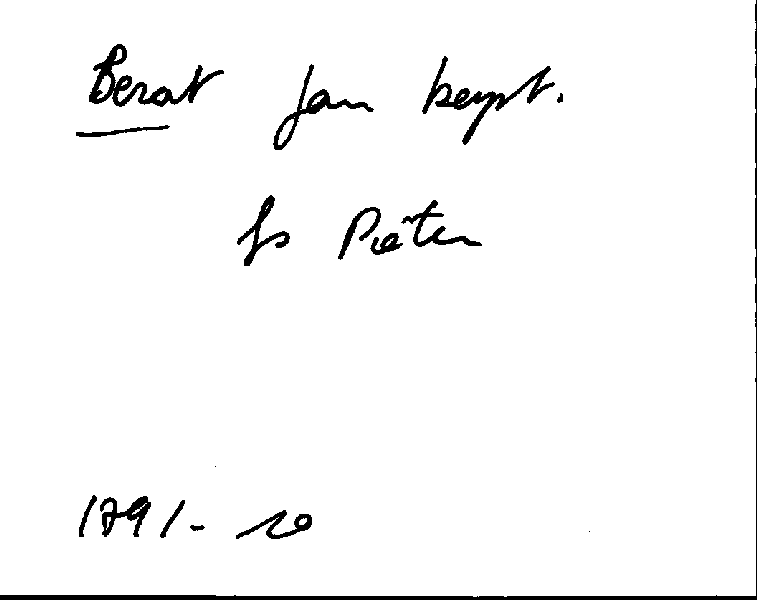 Berat Jan bapt.
fs Pieter
1791-20